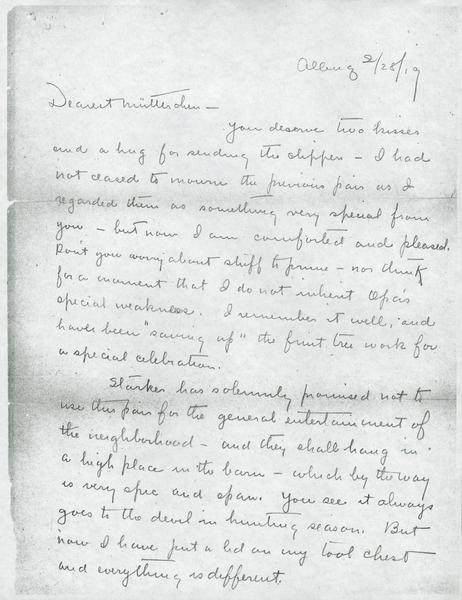 Albuq 2/28/19
Dearest Mütterchen –
You deserve two kisses
and a hug for sending the clippers – I had
not ceased to mourn the previous pair as I
regarded them as something very special from
you – but now I am comforted and pleased.
Don't you worry about stuff to prune – nor think
for a moment that I do not inherit Opa's
special weakness. I remember it well, and
have been "saving up" the fruit tree work for
a special celebration.
Starker has solemnly promised not to
use this pair for the general entertainment of
the neighborhood – and they shall hang in
a high place in the barn – which by the way
is very spic and span. You see it always
goes to the devil in hunting season. But
now I have put a lid on my tool chest
and everything is different.